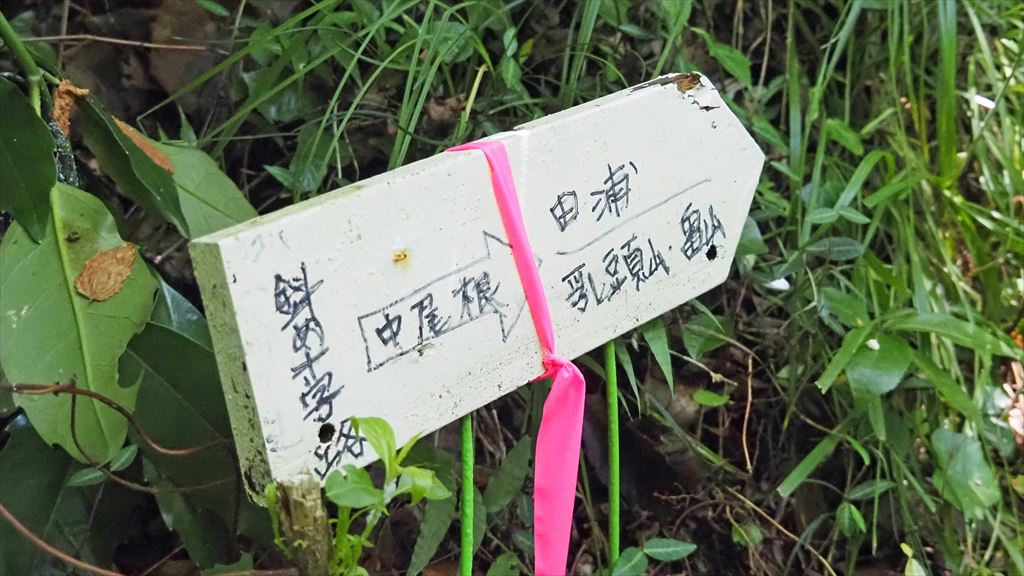 斜め十字路
中尾根
田浦
乳頭山・畠山